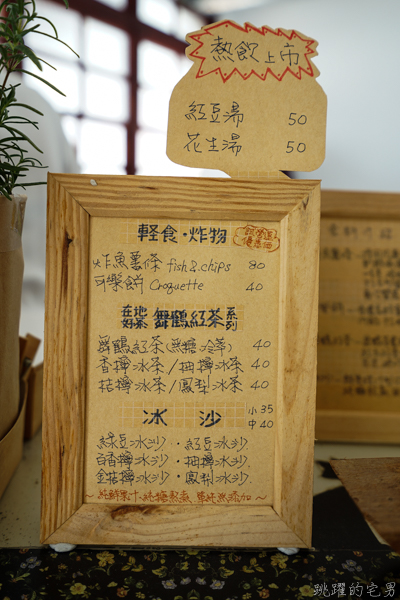 熱飲上市
紅豆湯 50
花生湯 50
輕食·炸物
炸魚薯條 fish & chips 80
可樂餅 Croquette 40
在地好茶 舞鶴紅茶系列
舞鶴紅茶(無糖·冷萃) 40
香檸冰茶/柚檸冰茶 40
桔檸冰茶/鳳梨冰茶 40
冰沙 小35 中40
綠豆冰沙·紅豆冰沙
百香檸冰沙·柚檸冰沙
金桔檸冰沙·鳳梨冰沙
跳躍的宅男